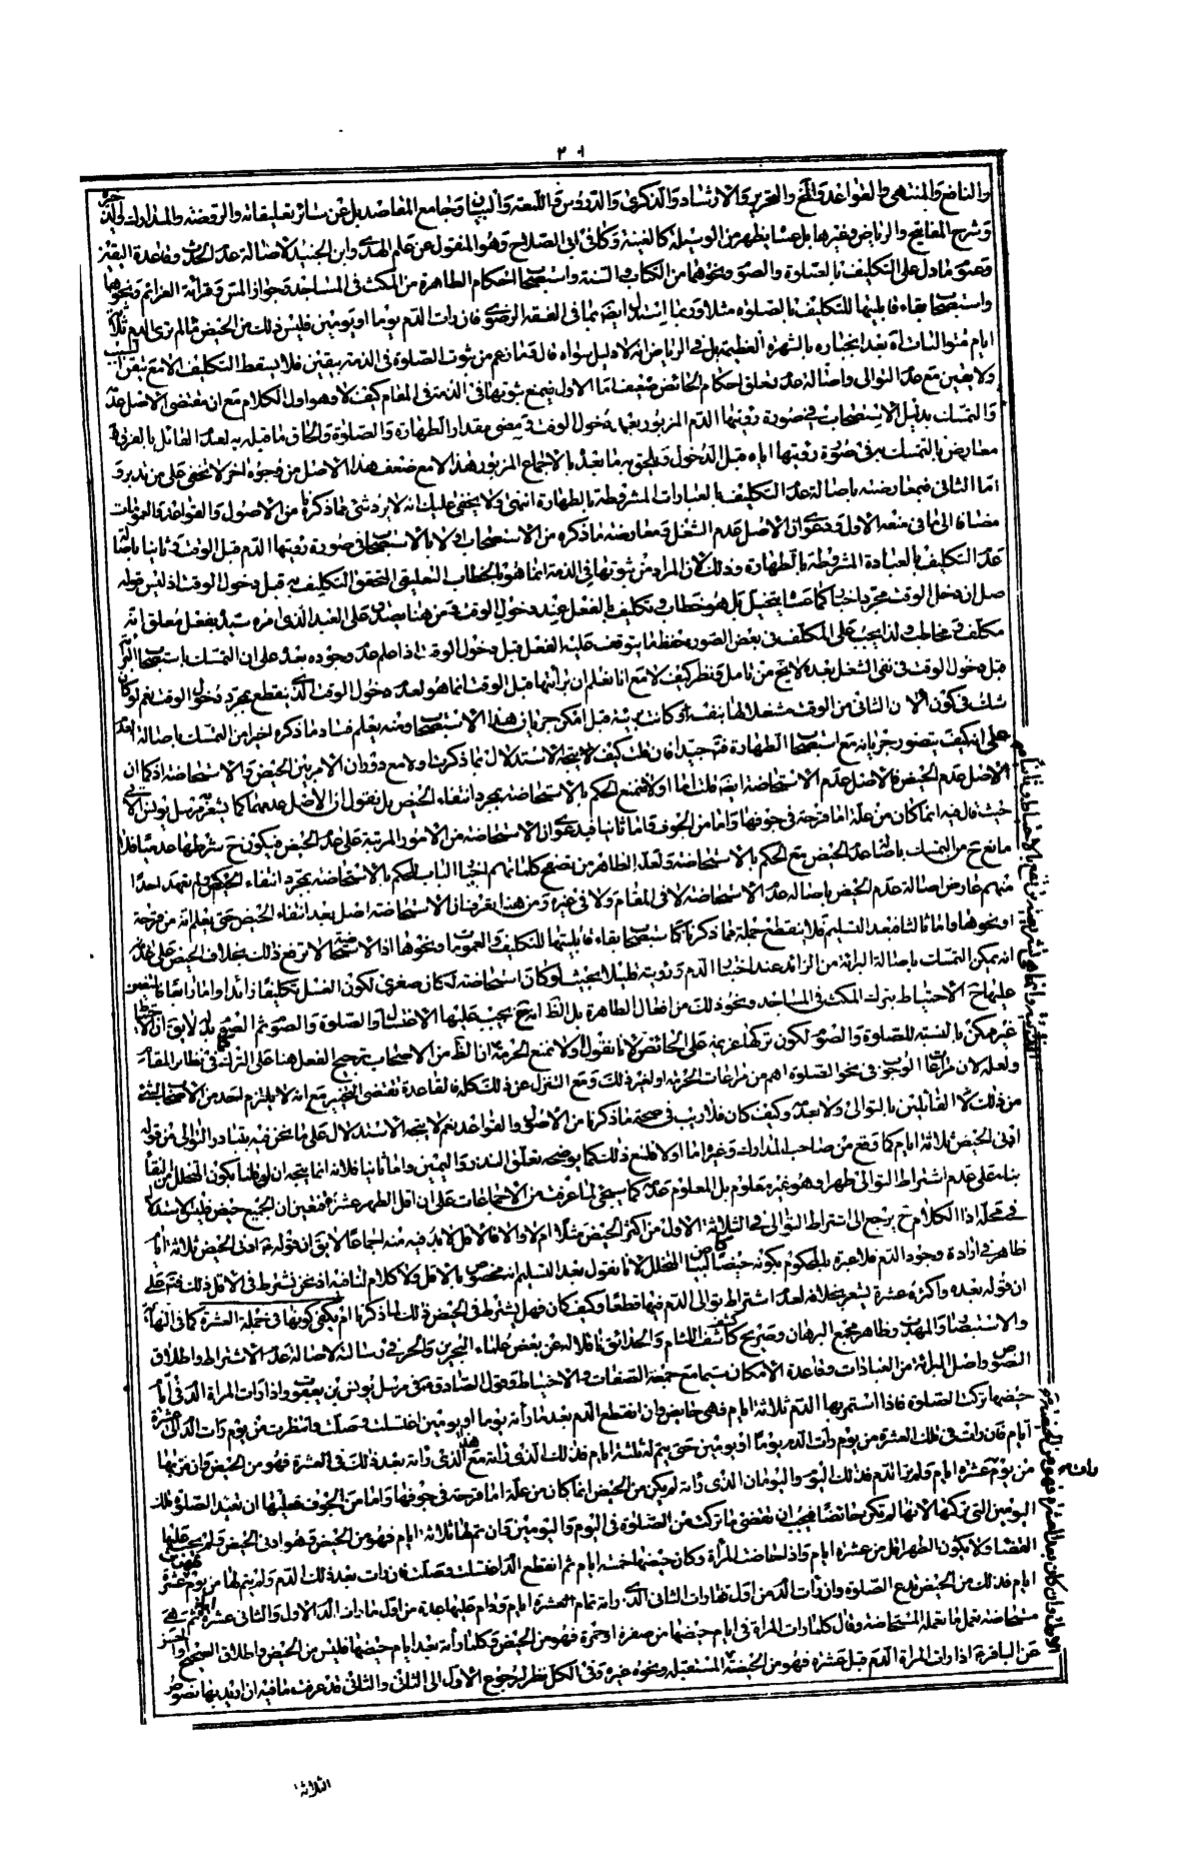 ٢٠١
والنافع والمنتهى والقواعد والتحرير والارشاد والذكرى والدروس واللمعة والبيان وجامع المقاصد بل عن سائر تعليقاته والروضة والمدارك
وشرح المفاتيح والرياض وغيرها بل عساه يظهر من الوسيلة كالغنية وكافي ابي الصلاح وهو المنقول عن علم الهدى وابن الجنيد لاصالة عدم الحدث وقاعدة اليقين
وعموم ما دل على التكليف بالصلوة والصوم ونحوهما من الكتاب والسنة واستصحاب احكام الطاهرة من المكث في المساجد وجواز المس وقرائة العزائم ونحوها
واستصحاب بقاء قابليتها للتكليف بالصلوة مثلا وربما استدل ايضا بما في الفقه الرضوي فان رات الدم يوما او يومين فليس ذلك من الحيض ما لم تر الدم ثلاثة
ايام متواليات بعد انجباره بالشهرة العظيمة بل في الرياض انه لا دليل سواه قال وما زعم من ثبوت الصلوة في الذمة بيقين فلا يسقط التكليف الا مع تيقن
ولا يقين مع عدم التوالي واصالة عدم تعلق احكام الحائض ضعيف اما الاول فيمنع ثبوتها في الذمة في المقام كيف لا وهو اول الكلام مع ان مقتضى الاصل عدمه
والتمسك بذيل الاستصحاب في صورة رؤيتها الدم المزبور بعد دخول الوقت ومضي مقدار الطهارة والصلوة والحاق ما قبله به لعدم القائل بالفرق
معارض بالتمسك به في صورة رؤيتها اياه قبل الدخول ويلحق به ما بعد بالاجماع المزبور هذا مع ضعف هذا الاصل من وجوه اخر لا تخفى على من تدبر و
اما الثاني فبمعارضته باصالة عدم التكليف بالعبادات المشروطة بالطهارة انتهى ولا يخفى عليك انه لا يرد شئ مما ذكره من الاصول والقواعد والعمومات
مضافا الى ما في منعه الاول ودعوى ان الاصل عدم الشغل ومعارضته ما ذكره من الاستصحاب اولا بالاستصحاب في صورة رؤيتها الدم قبل الوقت وثانيا باصالة
عدم التكليف بالعبادة المشروطة بالطهارة وذلك لان المراد من ثبوتها في الذمة انما هو بالخطاب التعليقي المتحقق التكليف به قبل دخول الوقت اذ ليس قوله
صل ان دخل الوقت مجرد اخبار كما عساه يتخيل بل هو خطاب وتكليف بالفعل عند دخول الوقت ومن هنا يصدق على العبد الذي امره سيده بفعل معلق انه
مكلف ومخاطب ولذا يجب على المكلف في بعض الصور حفظ ما يتوقف عليه الفعل قبل دخول الوقت اذا علم عدم وجوده بعد على ان التمسك باستصحاب
قبل دخول الوقت في نفي الشغل بعده لا يخ من تامل ونظر كيف لا مع انا نعلم ان برائتها قبل الوقت انما هو لعدم دخول الوقت الذي ينقطع بمجرد دخول الوقت نعم لو كان
شك في كون الان الثاني من الوقت مشغلا لها بنفسه او كانت بريئة قبل امكن جريان هذا الاستصحاب ومنه يعلم فساد ما ذكره اخيرا من التمسك باصالة
على انه كيف يتصور جريانه مع استصحاب الطهارة فت جيدا فان قلت كيف لا يتجه الاستدلال بما ذكرت ولا مع دوران الامر بين الحيض والاستحاضة اذ كما ان
الاصل عدم الحيض فالاصل عدم الاستحاضة ايضا قلت اما اولا فنمنع الحكم بالاستحاضة بمجرد انتفاء الحيض بل نقول ان الاصل عدمهما كما يشعر به مرسل يونس الاتي
حيث قال فيه انما كان من علة اما قرحة في جوفها واما من الجوف واما ثانيا فبدعوى ان الاستحاضة من الامور المرتبة على عدم الحيض فيكون ح شرطها عدميا فلا
مانع ح من التمسك باصالة عدم الحيض مع الحكم بالاستحاضة ولعله الظاهر من تصفح كلماتهم اخبار الباب للحكم بالاستحاضة بمجرد انتفاء الحيض ولم يعهد احدا
منهم عارض اصالة عدم الحيض باصالة عدم الاستحاضة لا في المقام ولا في غيره ومن هنا يعرف ان الاستحاضة اصل بعد انتفاء الحيض حتى يعلم انه من قرحة
او نحوها واما ثالثا فبعد التسليم فلا ينقطع جملة مما ذكرنا كاستصحاب بقاء قابليتها للتكليف والعمومات ونحوها اذ الاستحاضة لا ترفع ذلك بخلاف الحيض على
انه يمكن التمسك باصالة البرائة من الزائد عند اختبار الدم ورؤيته قليلا بحيث لو كان استحاضة لكان صغرى لكون الغسل تكليفا زائدا واما رابعا
عليها ح الاحتياط بترك المكث في المساجد ونحو ذلك من افعال الطاهرة بل الظاهر انه ح يجب عليها الاغتسال والصلوة والصوم ثم الصوم بل لا يق ان
غير ممكن بالنسبة للصلوة والصوم لكون تركها عزيمة على الحائض لانا نقول اولا نمنع الحرمة اذ الظاهر من الاصحاب ترجيح الفعل هنا على الترك في نظائر المقام
ولعله لان مراعاة الوجوب في نحو الصلوة اهم من مراعات الحرمة او لغير ذلك ومع التنزل عن ذلك كله فالقاعدة تقتضي التخيير مع انه لا يلتزم احد من الاصحاب
من ذلك لا القائلين بالتوالي ولا بعدمه وكيف كان فلا ريب في صحة ما ذكرنا من الاصول والقواعد نعم لا يتجه الاستدلال على ما نحن فيه بتبادر التوالي من قوله
ادنى الحيض ثلاثة ايام كما وقع من صاحب المدارك وغيره اما اولا فلمنع ذلك كما يوضحه تعلق النذر واليمين واما ثانيا فلانه انما يتجه ان لو قلنا بكون المتخلل من النقاء
بناء على عدم اشتراط التوالي طهرا وهو غير معلوم بل المعلوم عدمه كما سيجئ لما عرفت من الاجماعات على ان اقل الطهر عشرة فتعين ان الجميع حيض فليس الاستدلال
في محله اذ الكلام ح يرجع الى اشتراط التوالي في الثلاثة الاول من اكثر الحيض مثلا ام لا والا فالاقل لا بد فيه منه اجماعا لا يق ان قوله ادنى الحيض ثلاثة ايام
ظاهر في ارادة وجود الدم فلا عبرة بالمحكوم بكونه حيضا كالبياض المتخلل لانا نقول بعد التسليم انه مخصوص بالاقل ولا كلام لنا فيه اذ نحن نشترط في الاقل ذلك فت على
ان قوله بعده واكثره عشرة يشعر بخلافه لعدم اشتراط توالي الدم فيها قطعا وكيف كان فهل يشترط في الحيض ذلك لما ذكرنا ام يكفي كونها في جملة العشرة كما في النهاية
والاستبصار والمهذب وظاهر مجمع البرهان وصريح كاشف اللثام والحدائق ناقلا له عن بعض علماء البحرين والحر في رسالة لاصالة عدم الاشتراط واطلاق
النصوص واصل البرائة من العبادات وقاعدة الامكان سيما مع جمعه الصفات والاحتياط وقول الصادق في مرسل يونس بن يعقوب واذا رات المراة الدم في ايام
حيضها تركت الصلوة فاذا استمر بها الدم ثلاثة ايام فهي حايض وان انقطع الدم بعد ما راته يوما او يومين اغتسلت وصلت وانتظرت من يوم رات الدم الى عشرة
ايام فان رات في تلك العشرة من يوم رات الدم يوما او يومين حتى يتم له ثلثة ايام فذلك الذي راته مع هذا الذي راته بعد ذلك في العشرة فهو من الحيض وان مر بها
من يوم رات عشرة ايام ولم تر الدم فذلك اليوم واليومان الذي راته لم يكن من الحيض انما كان من علة اما قرحة في جوفها واما من الجوف فعليها ان تعيد الصلوة تلك
اليومين التي تركتها لانها لم تكن حائضا فيجب ان تقضي ما تركت من الصلوة في اليوم واليومين وان تم لها ثلاثة ايام فهو من الحيض وهو ادنى الحيض ولم يجب عليها
القضاء ولا يكون الطهر اقل من عشرة ايام واذا حاضت المراة وكان حيضها خمسة ايام ثم انقطع الدم اغتسلت وصلت فان رات بعد ذلك الدم ولم يتم لها من يوم طهرت عشرة
ايام فذلك من الحيض تدع الصلوة وان رات الدم من اول ما رات الثاني الذي راته تمام العشرة ايام ودام عليها عدت من اول ما رات الدم الاول والثاني عشرة ايام ثم هي
مستحاضة تعمل ما تعمله المستحاضة وقال كلما رات المراة في ايام حيضها من صفرة او حمرة فهو من الحيض وكلما راته بعد ايام حيضها فليس من الحيض واطلاق الصحيح
عن الباقر ع اذا رات المراة الدم قبل عشرة فهو من الحيضة المستقبلة ونحوه غيره وفي الكل نظر لرجوع الاول الى الثاني والثاني قد عرفت ما فيه ان اريد بها نصوص
الثلاثة